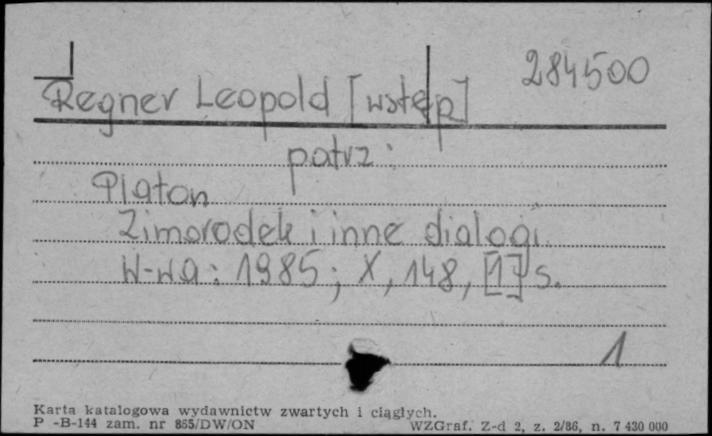 284500
Regner Leopold [wstęp]
patrz:
Platon
Zimorodek i inne dialogi.
W-wa: 1985; X, 148, [1] s.
1
Karta katalogowa wydawnictw zwartych i ciągłych.
P -B-144 zam. nr 865/DW/ON WZGraf. Z-d 2, z. 2/86, n. 7 430 000